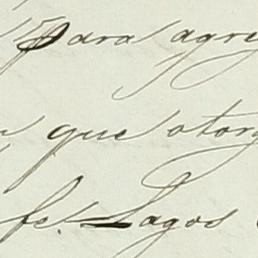 para agre
que otorg
fe. Lagos